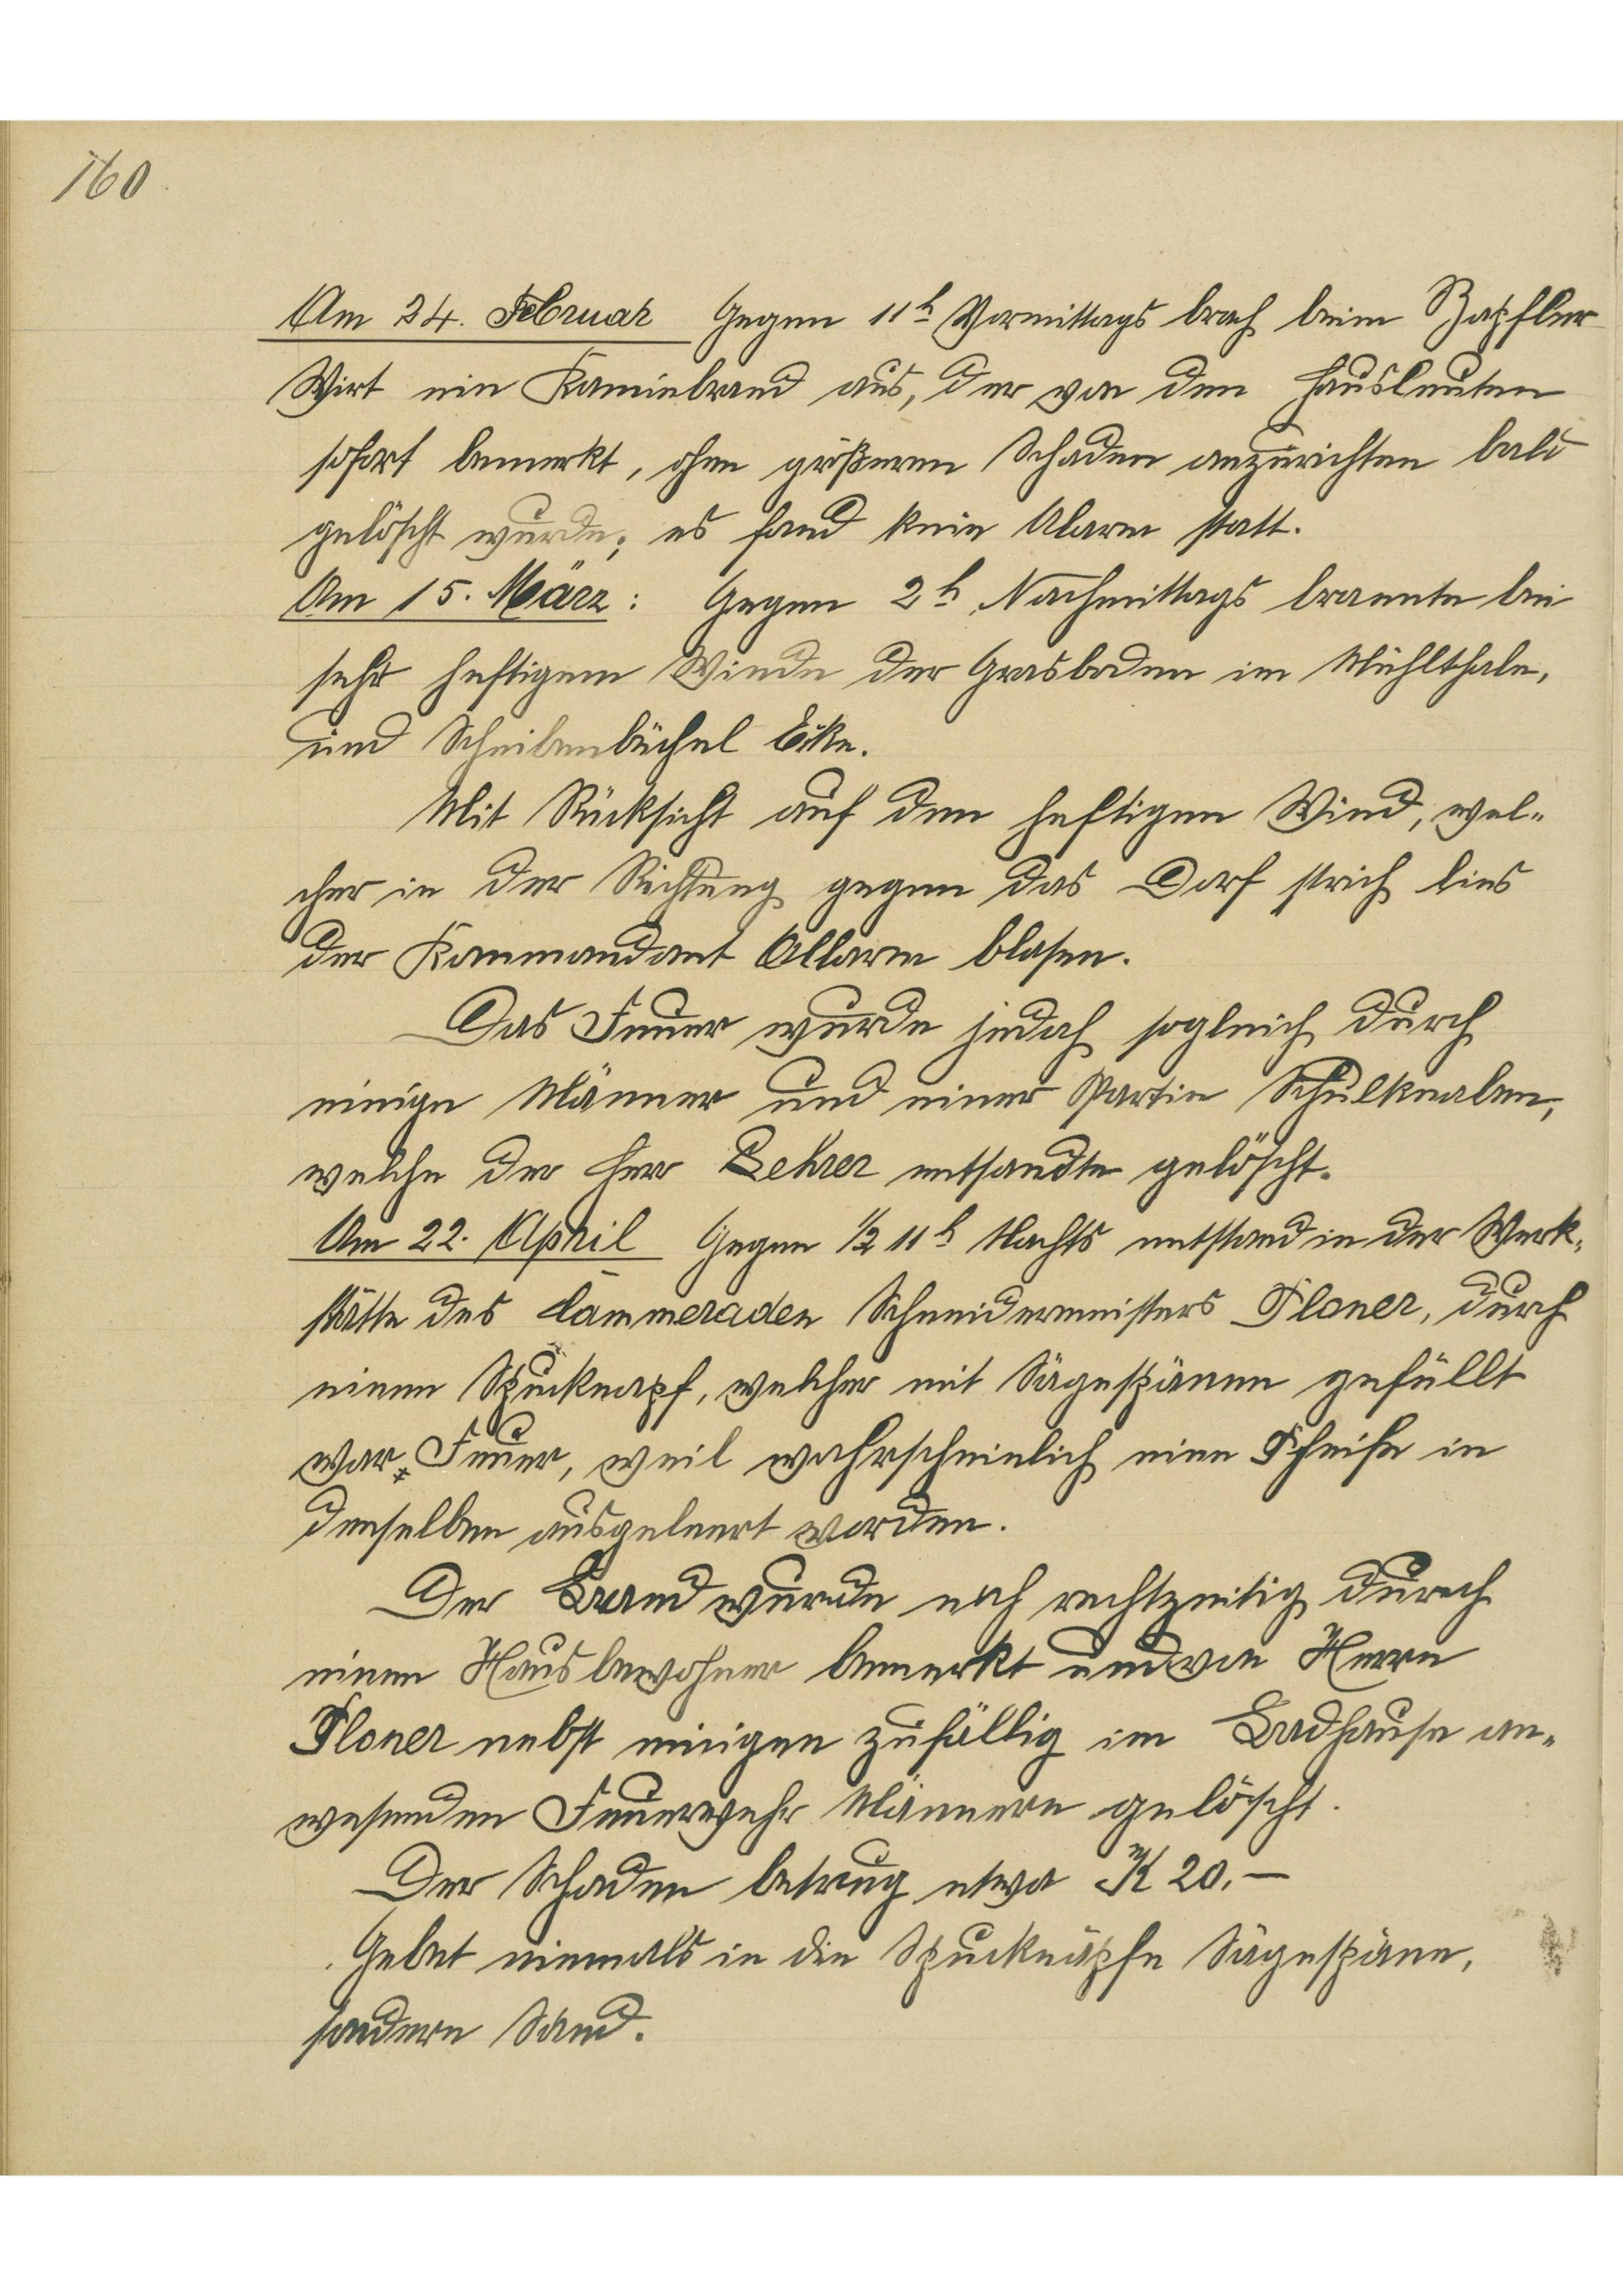 160
Am 24. Februar Gegen 11h Vormittags brach beim Zapfler
Wirt ein Kaminbrand aus, der von den Hausleuten
sofort bemerkt, ohne größeren Schaden anzurichten bald
gelöscht wurde; es fand kein Alarm statt.
Am 15. März: Gegen 2h Nachmittags brannte bei
sehr heftigem Winde der Grasboden im Mühlthale,
und Scheibenbüchel Ecke.
Mit Rücksicht auf den heftigen Wind, wel-
cher in der Richtung gegen das Dorf strich lies
der Kommandant Allarm blasen.
Das Feuer wurde jedoch sogleich durch
einige Männer und einer Partie Schulknaben,
welche der Herr Lehrer entsandte gelöscht.
Am 22. April Gegen 1/2 11h Nachts entstand in der Werk-
stätte des Cammeraden Schneidermeisters Ploner, durch
einen Spucknapf, welcher mit Sägespänen gefüllt
war Feuer, weil wahrscheinlich eine Pfeife in
denselben ausgeleert worden.
Der Brand wurde noch rechtzeitig durch
einen Hausbewohner bemerkt und von Herrn
Ploner nebst einigen zufällig im Badhause an-
wesenden Feuerwehr Männern gelöscht.
Der Schaden betrug etwa K 20.—
Gebet niemals in die Spucknäpfe Sägespäne,
sondern Sand.